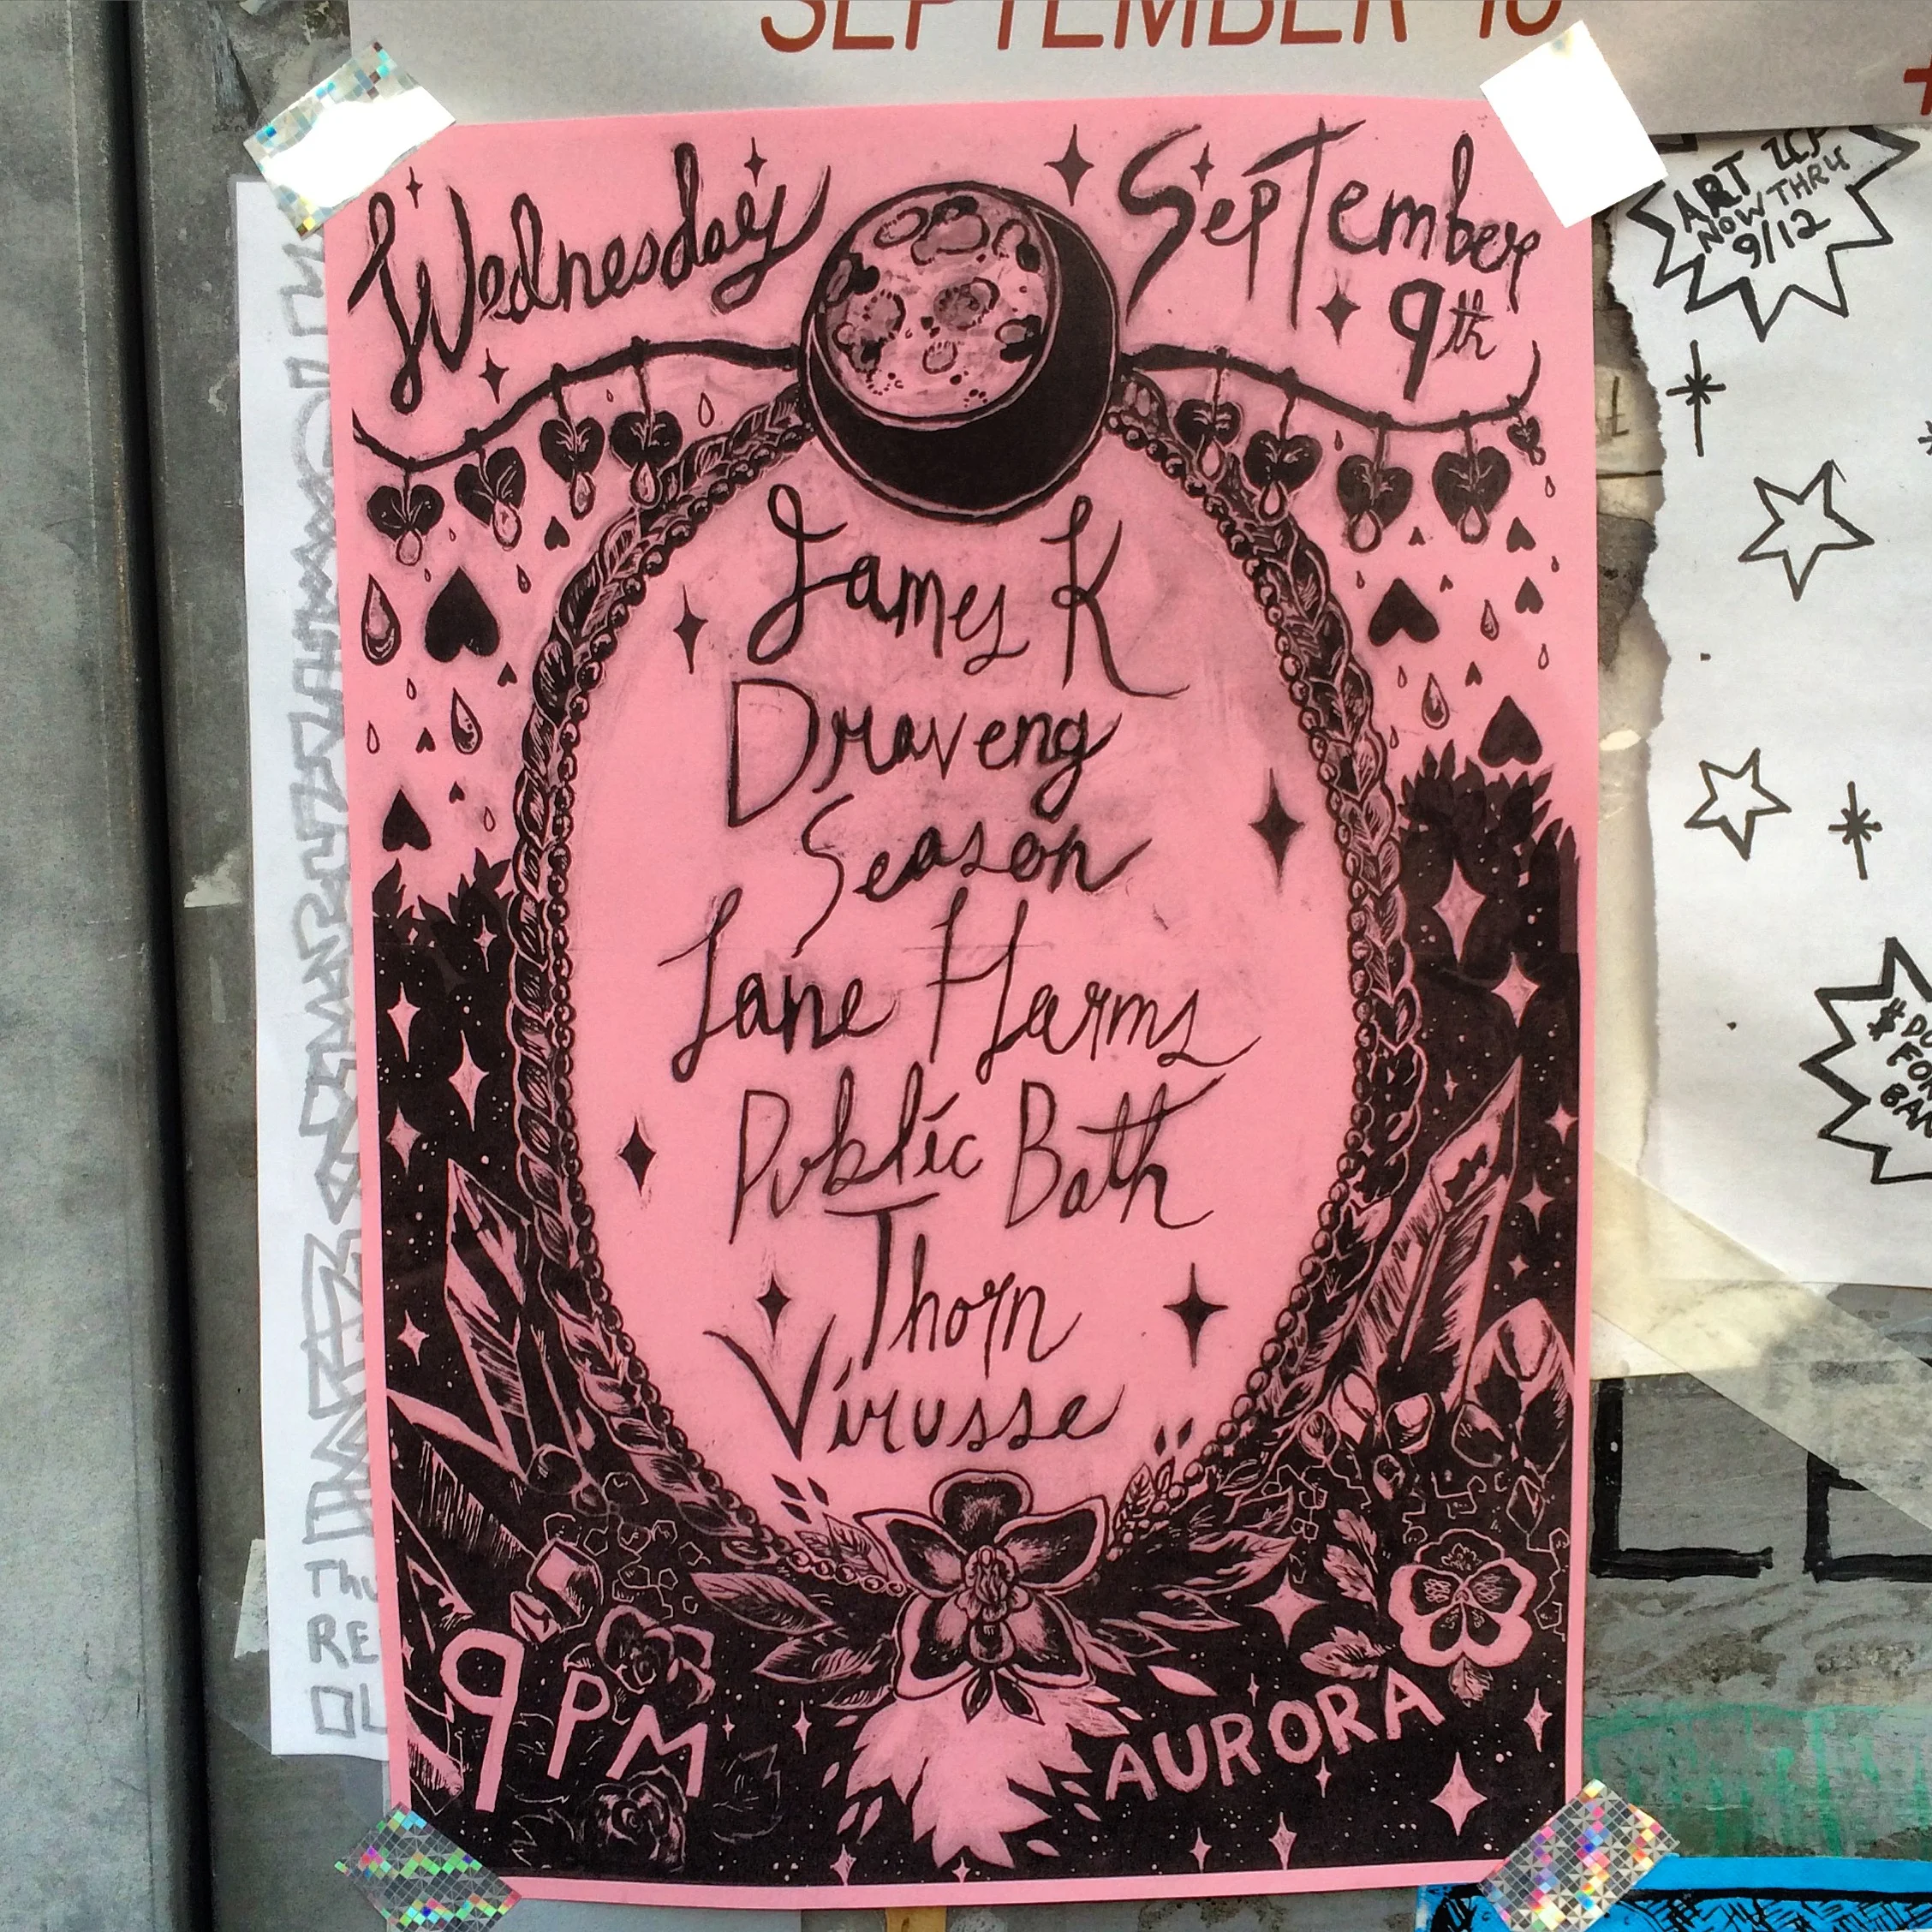 SEPTEMBER
Wednesday
September
9th
James K
Draveng
Season
Jane Harms
Public Bath
Thorn
Virusse
9PM
AURORA
ART UP
NOW THRU
9/12
$
FOR